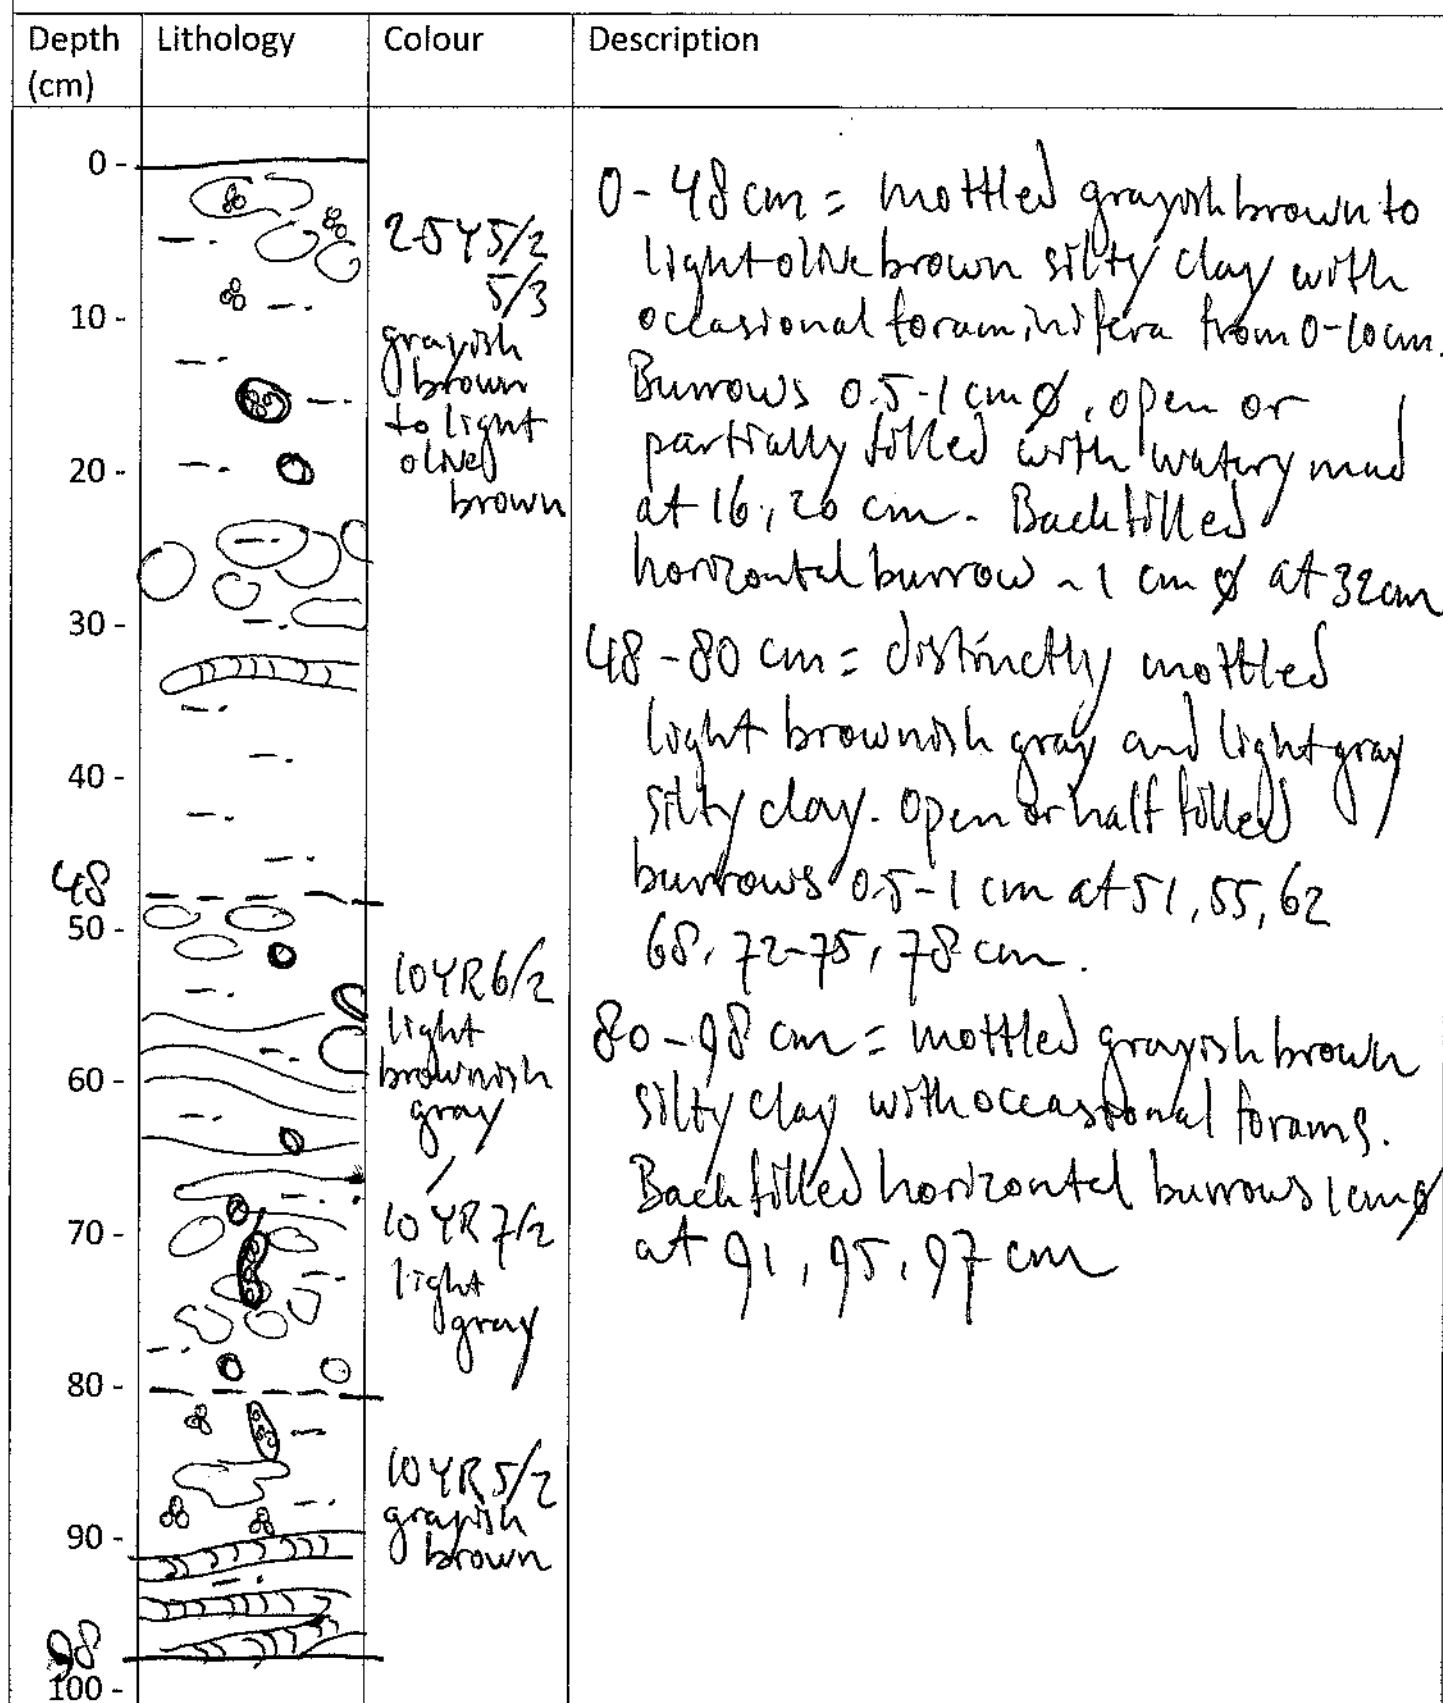 Depth Lithology Colour Description
(cm)
0 -
10 -
20 -
30 -
40 -
48
50 -
60 -
70 -
80 -
90 -
98
100 -
2.5Y 5/2
5/3
grayish
brown
to light
olive
brown
10YR6/2
light
brownish
gray
/
10YR 7/2
light
gray
10YR 5/2
grayish
brown
0-48 cm = mottled grayish brown to
light olive brown silty clay with
occasional foraminifera from 0-10cm.
Burrows 0.5-1 cm Ø, open or
partially filled with watery mud
at 16, 20 cm. Backfilled
horizontal burrow ~1 cm Ø at 32cm
48-80 cm = distinctly mottled
light brownish gray and light gray
silty clay. Open or half filled
burrows 0.5-1 cm at 51, 55, 62
68, 72-75, 78 cm.
80-98 cm = mottled grayish brown
silty clay with occasional forams.
Backfilled horizontal burrows 1cmØ
at 91, 95, 97 cm